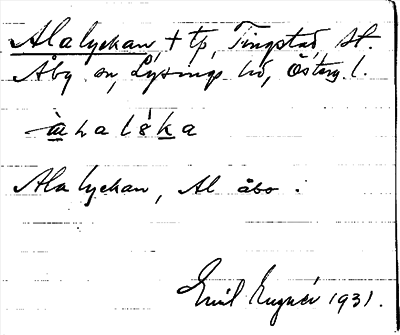 Alalyckan, † tp, Tingstad, St.
Åby sn, Lysings hd, Österg. l.
àlalíka
Alalyckan, Al åbo.
Emil 1931.